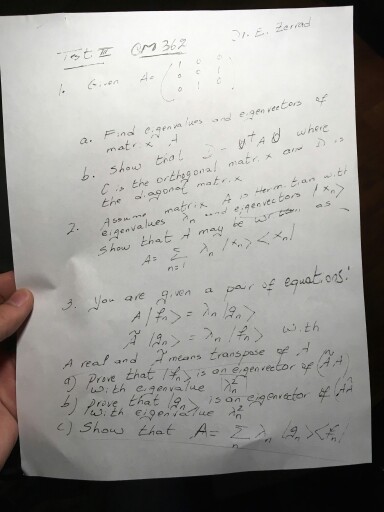 Dr. E. Zerrad
Test III QM 362
1. Given A= ( 1 0 0
0 0 1
0 1 0 )
a. Find eigenvalues and eigenvectors of
matrix A
b. Show that D = U†AU where
is the orthogonal matrix and D is
the diagonal matrix
2. Assume matrix A is Hermitian with
eigenvalues λn and eigenvectors |xn>
Show that A may be written as
A= Σ n=1 λn |xn><xn|
3. You are given a pair of equations:
A|fn> = λn |gn>
Ã|gn> = λn |fn> with
A real and Ã means transpose of A
a) prove that |fn> is an eigenvector of (ÃA)
with eigenvalue λn²
b) prove that |gn> is an eigenvector of (AÃ)
with eigenvalue λn²
c) Show that A= Σ n λn |gn><fn|